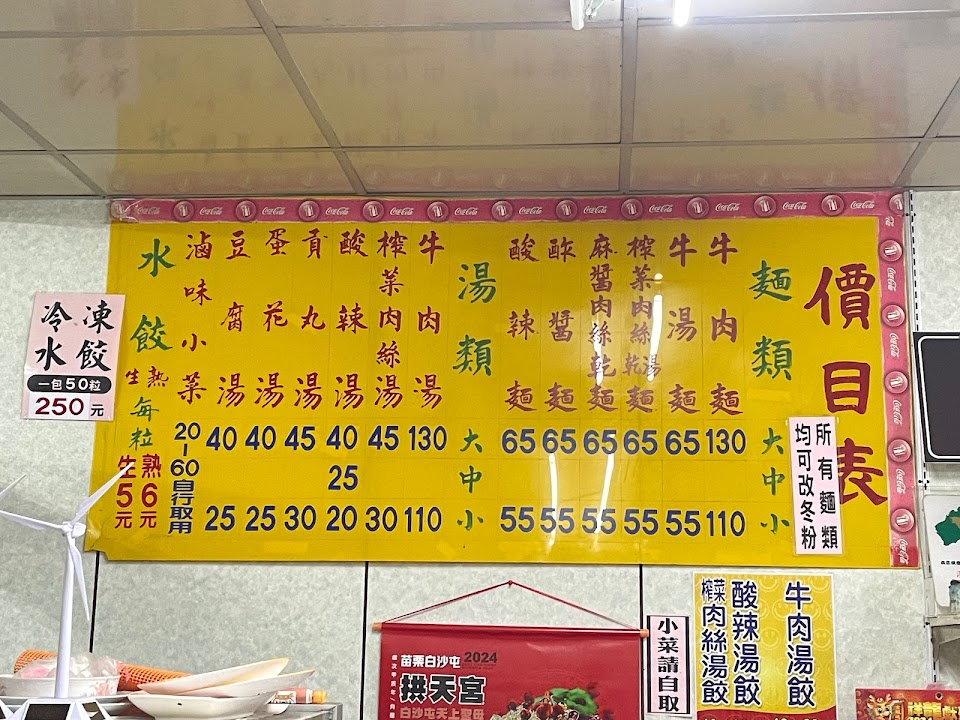 價目表
麵類 大 中 小
牛肉麵 130 110
牛湯麵 65 55
榨菜肉絲乾湯麵 65 55
麻醬肉絲乾麵 65 55
酢醬麵 65 55
酸辣麵 65 55
湯類 大 中 小
牛肉湯 130 110
榨菜肉絲湯 45 30
酸辣湯 40 25 20
貢丸湯 45 30
蛋花湯 40 25
豆腐湯 40 25
滷味小菜 20-60自行取用
水餃 生熟每粒
熟6元
生5元
所有麵類
均可改冬粉
冷凍
水餃
一包50粒
250元
Coca-Cola
苗栗白沙屯 2024
拱天宮
白沙屯天上聖母
小菜請自取
牛肉湯餃
酸辣湯餃
榨菜肉絲湯餃